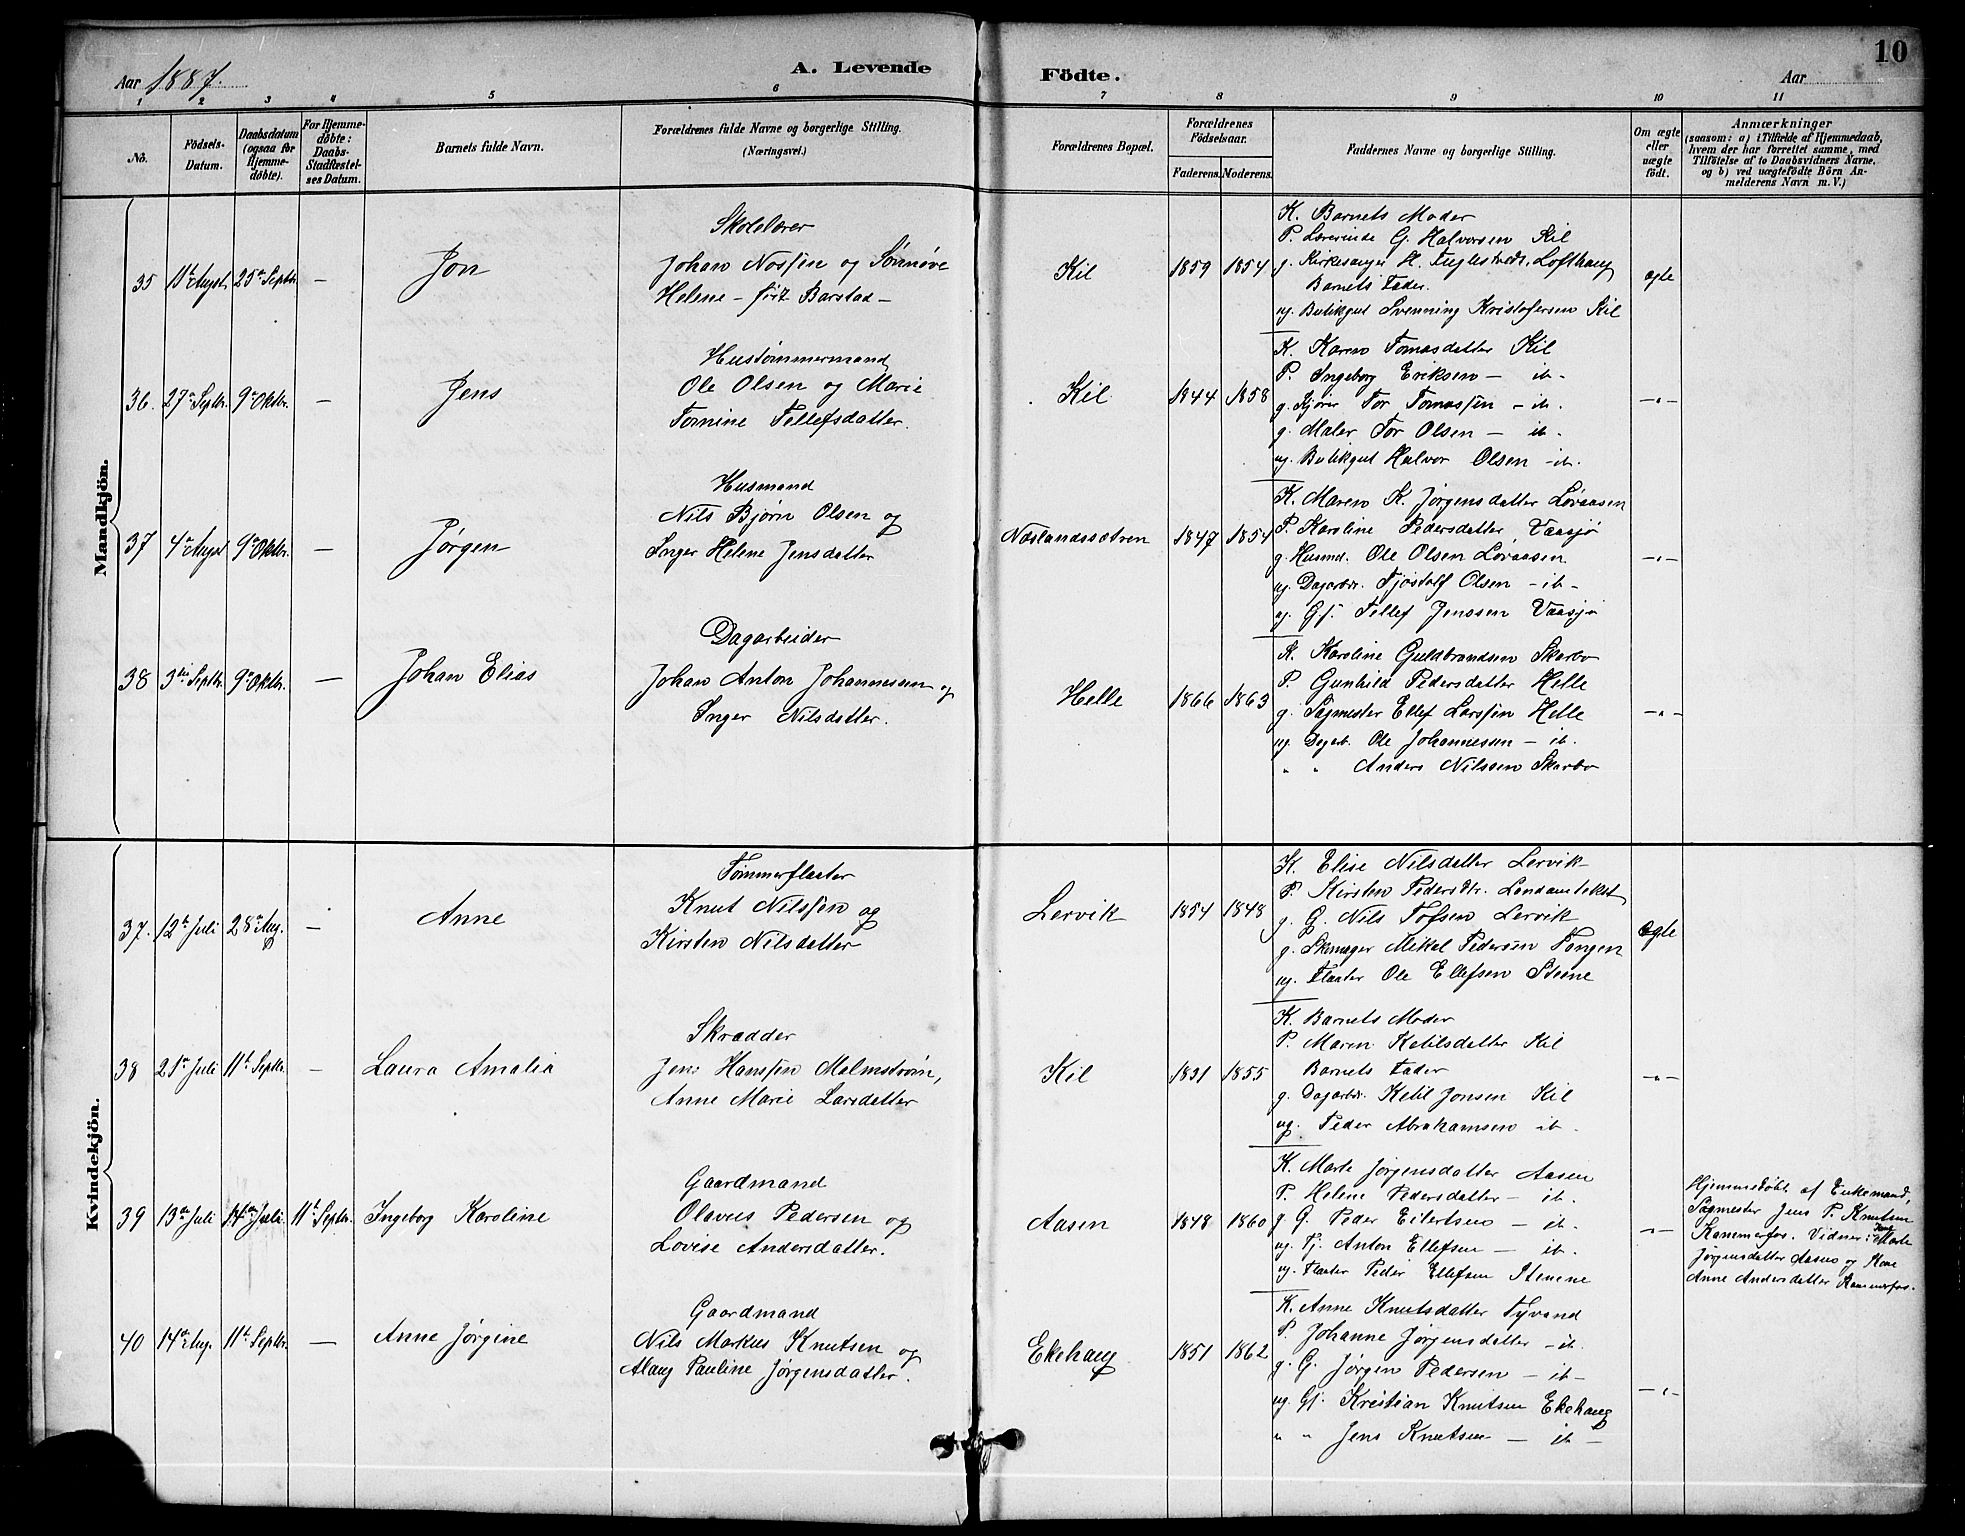 Aar 1887.
A. Levende Födte.
Aar
10
1 2 3 4 5 6 7 8 9 10 11
No.
Födsels-Datum.
Daabsdatum (ogsaa for Hjemme-döbte).
For Hjemme-döbte: Daabs-Stadfæstel-ses Datum.
Barnets fulde Navn.
Forældrenes fulde Navne og borgerlige Stilling.
(Næringsvei.)
Forældrenes Bopæl.
Forældrenes Födselsaar.
Faderens. Moderens.
Faddernes Navne og borgerlige Stilling.
Om ægte eller uægte födt.
Anmærkninger
(saasom: a) i Tilfælde af Hjemmedaab,
hvem der har forrettet samme, med
Tilföielse af to Daabsvidners Navne,
og b) ved uægtefödte Börn An-
melderens Navn m. V.)
Mandkjön.
35 11te Augst. 25de Septbr. —
Jon
Skolelærer
Johan Nossen og Sønnøve
Helene – født Barstad –
Kil 1859 1854
K. Barnets Moder
P. Lærerinde G. Halvorsen Kil
g. Kirkesanger H. Lofthaug
Barnets Fader.
ug. Butikgut Svenning Kristofersen Kil
ægte
36. 27de Septbr. 9de Oktbr. —
Jens
Hustømmermand
Ole Olsen og Marie
Tomine Tellefsdatter.
Kil 1844 1858
K. Karen Tomasdatter Kil
P. Ingeborg Eriksen – ib.
g. Tor Tomassen – ib.
g. Maler Tor Olsen – ib.
ug. Butikgut Halvor Olsen – ib.
—"—
37 4de Augst 9de Oktbr. —
Jørgen
Husmand
Nils Bjørn Olsen og
Inger Helene Jensdatter
Næslandssætren 1847 1854
K. Maren K. Jørgensdatter Løvaasen
P. Karoline Pedersdatter Vaasjø
g. Husmd. Ole Olsen Løvaasen
ug. Dagarbdr. Tjøstolf Olsen – ib –
ug. Gf. Tellef Jenssen Vaasjø
—"—
38 3die Septbr. 9de Oktbr. —
Johan Elias
Dagarbeider
Johan Anton Johannessen og
Inger Nilsdatter.
Helle 1866 1863
K. Karoline Guldbrandsen Skarbo
P. Gunhild Pedersdatter Helle
g. Sagmester Ellef Larssen Helle
ug. Dagarb. Ole Johannessen – ib.
" " Anders Nilssen Skarbo
—"—
Kvindekjön.
37. 12te Juli 28de Aug. —
Anne
Tømmerflaater
Knut Nilssen og
Kirsten Nilsdatter
Lervik 1854 1848
K. Elise Nilsdatter Lervik
P. Kirsten Pedersdtr.
g. G. Nils Lervik
g. Mikal Pedersen Tangen
ug. Flaater Ole Ellefsen Steene
ægte
38 21de Juli 11te Septbr. —
Laura Amalia
Skrædder
Jens Hanssen Malmstrøm,
Anne Marie Larsdatter
Kil 1831 1855
K. Barnets Moder
P. Maren Ketilsdatter Kil
Barnets Fader
g. Dagarbdr. Ketil Jonsen Kil
ug. Peder Abrahamsen ib.
—"—
39 13de Juli 14de Juli 11te Septbr.
Ingeborg Karoline
Gaardmand
Olavus Pedersen og
Lovise Andersdatter.
Aasen 1848 1860
K. Marte Jørgensdatter Aasen
P. Helene Pedersdatter – ib.
g. G. Peder Eilertsen – ib.
ug. Tj. Anton Ellefsen – ib.
ug. Flaater Peder Ellefsen Steene
—"—
Hjemmedøbt af Enkemand,
Sagmester Jens P. Knutsen
Kammerfos. Vidner: Kone Marte
Jørgensdatter Aasen og Kone
Anne Andersdatter Kammerfos.
40 14de Aug. 11te Septbr. —
Anne Jørgine
Gaardmand
Nils Markus Knutsen og
Alaug Pauline Jørgensdatter.
Ekehaug 1851 1862
K. Anne Knutsdatter Tyvand
P. Johanne Jørgensdatter – ib.
g. G. Jørgen Pedersen – ib –
ug. Gf. Kristian Knutsen Ekehaug
" " Jens Knutsen – ib –
—"—